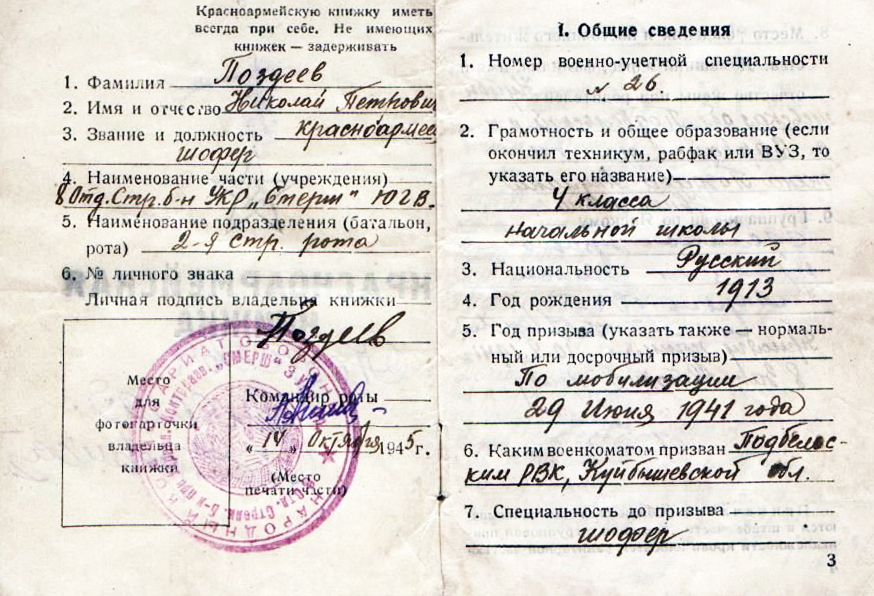 Красноармейскую книжку иметь
всегда при себе. Не имеющих
книжек — задерживать
1. Фамилия Поздеев
2. Имя и отчество Николай Петрович
3. Звание и должность красноармеец
шофер
4. Наименование части (учреждения)
8 Отд. Стр. б-н УКР „Смерш" ЮГВ.
5. Наименование подразделения (батальон,
рота) 2-я стр. рота
6. № личного знака
Личная подпись владельца книжки
Поздеев
Место
для
фотокарточки
владельца
книжки
Командир роты
„14" Октября 1945 г.
(Место
печати части)
НАРОДНЫЙ
„СМЕРШ"
I. Общие сведения
1. Номер военно-учетной специальности
№ 26.
2. Грамотность и общее образование (если
окончил техникум, рабфак или ВУЗ, то
указать его название)
4 класса
начальной школы
3. Национальность Русский
4. Год рождения 1913
5. Год призыва (указать также — нормаль-
ный или досрочный призыв)
По мобилизации
29 Июня 1941 года
6. Каким военкоматом призван Подбельс-
ким РВК, Куйбышевской обл.
7. Специальность до призыва
шофер
3